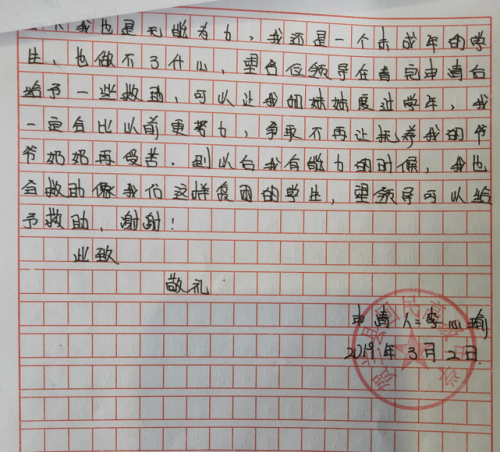 我也是无能为力，我还是一个未成年的学
生，也做不了什么，望各位领导在看完申请后
给予一些救助，可以让我和妹妹度过学年，我
一定会比以前更努力，争取不再让抚养我的爷
爷奶奶再受苦．到以后我有能力的时候，我也
会救助像我们这样贫困的学生，望领导可以给
予救助，谢谢！
此致
敬礼
申请人：李心瑜
2019年3月2日